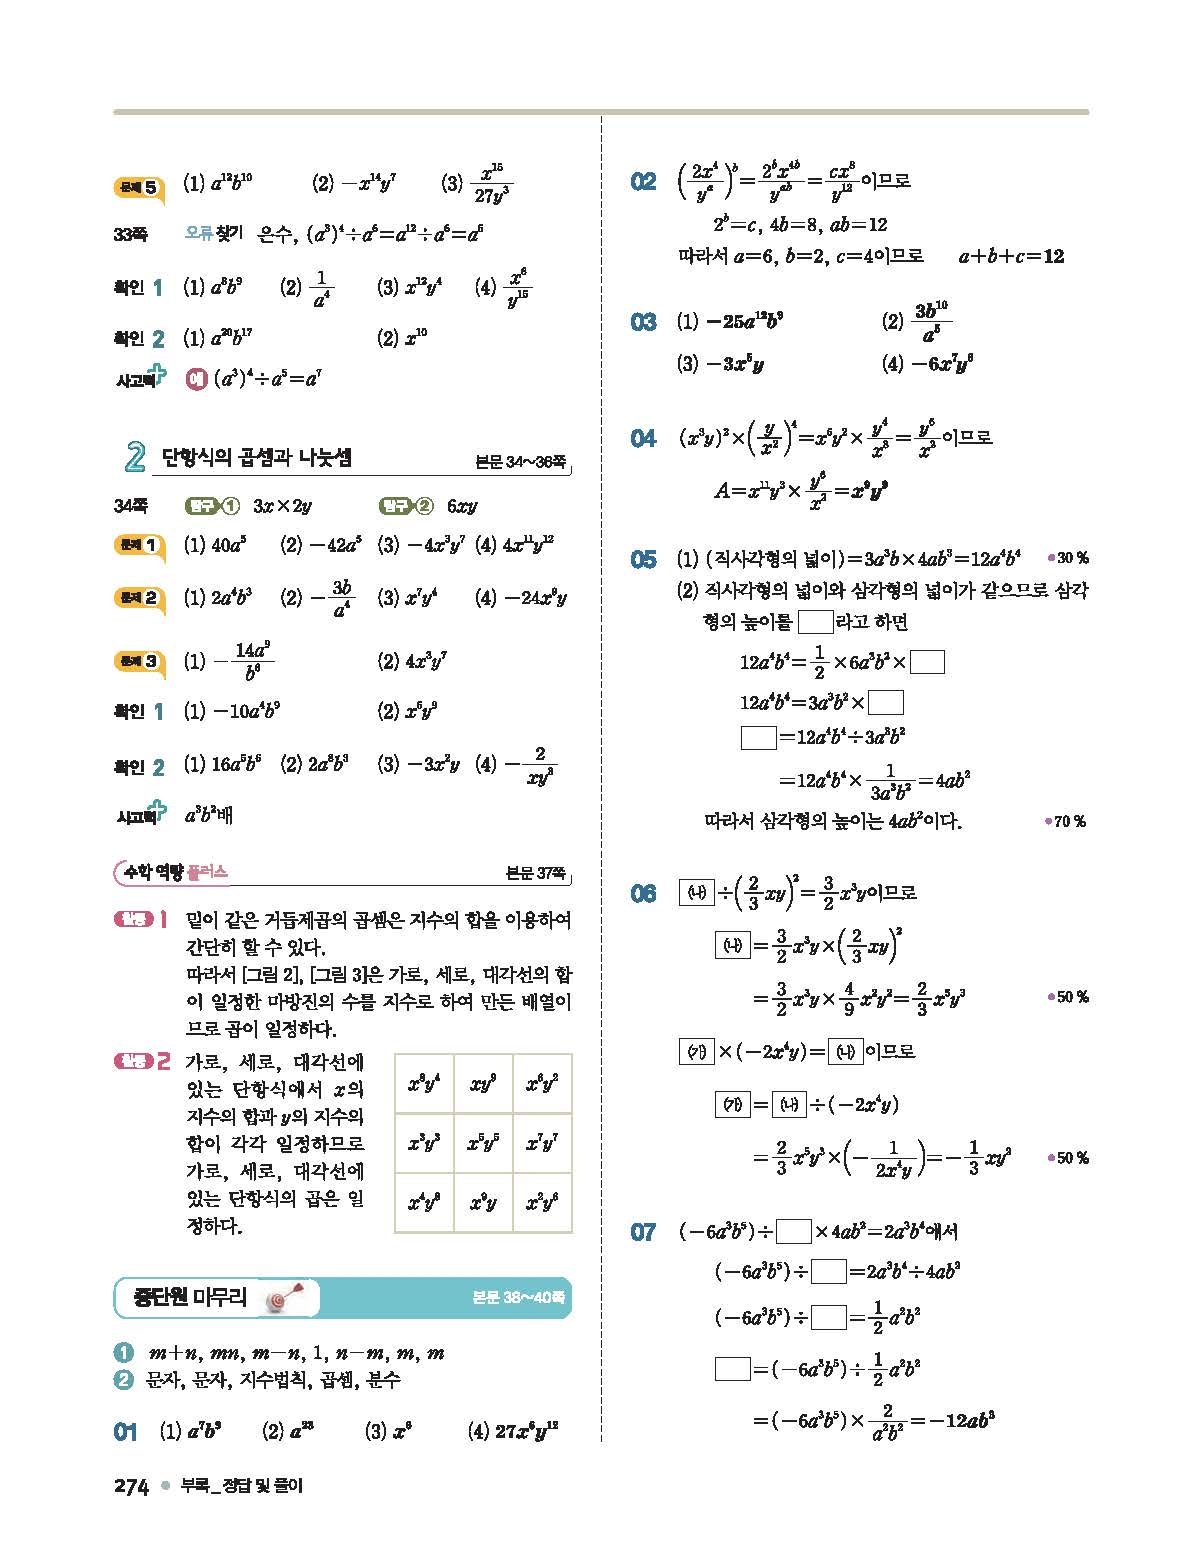 문제 5 (1) a¹²b¹⁰ (2) −x¹⁴y⁷ (3) x¹⁵/27y³
33쪽 오류 찾기 은수, (a³)⁴÷a⁶=a¹²÷a⁶=a⁶
확인 1 (1) a⁸b⁹ (2) 1/a⁴ (3) x¹²y⁴ (4) x⁶/y¹⁵
확인 2 (1) a²⁰b¹⁷ (2) x¹⁰
사고력+ 예 (a³)⁴÷a⁵=a⁷
2 단항식의 곱셈과 나눗셈 본문 34~36쪽
34쪽 탐구 ① 3x×2y 탐구 ② 6xy
문제 1 (1) 40a⁵ (2) −42a⁵ (3) −4x³y⁷ (4) 4x¹¹y¹²
문제 2 (1) 2a⁴b³ (2) −3b/a⁴ (3) x⁷y⁴ (4) −24x⁹y
문제 3 (1) −14a⁹/b⁶ (2) 4x³y⁷
확인 1 (1) −10a⁴b⁹ (2) x⁶y⁹
확인 2 (1) 16a⁵b⁶ (2) 2a⁸b³ (3) −3x²y (4) −2/xy³
사고력+ a³b²배
수학 역량 플러스 본문 37쪽
활동 1 밑이 같은 거듭제곱의 곱셈은 지수의 합을 이용하여
간단히 할 수 있다.
따라서 [그림 2], [그림 3]은 가로, 세로, 대각선의 합
이 일정한 마방진의 수를 지수로 하여 만든 배열이
므로 곱이 일정하다.
활동 2 가로, 세로, 대각선에
있는 단항식에서 x의
지수의 합과 y의 지수의
합이 각각 일정하므로
가로, 세로, 대각선에
있는 단항식의 곱은 일
정하다.
x⁸y⁴ xy⁹ x⁶y²
x³y³ x⁵y⁵ x⁷y⁷
x⁴y⁸ x⁹y x²y⁶
중단원 마무리 본문 38~40쪽
1 m+n, mn, m−n, 1, n−m, m, m
2 문자, 문자, 지수법칙, 곱셈, 분수
01 (1) a⁷b³ (2) a²³ (3) x⁶ (4) 27x⁶y¹²
02 (2x⁴/yᵃ)ᵇ=2ᵇx⁴ᵇ/yᵃᵇ=cx⁸/y¹²이므로
2ᵇ=c, 4b=8, ab=12
따라서 a=6, b=2, c=4이므로 a+b+c=12
03 (1) −25a¹²b⁹ (2) 3b¹⁰/a⁵
(3) −3x⁵y (4) −6x⁷y⁶
04 (x³y)²×(y/x²)⁴=x⁶y²×y⁴/x⁸=y⁶/x²이므로
A=x¹¹y³×y⁶/x²=x⁹y⁹
05 (1) (직사각형의 넓이)=3a³b×4ab³=12a⁴b⁴ ●30 %
(2) 직사각형의 넓이와 삼각형의 넓이가 같으므로 삼각
형의 높이를 □라고 하면
12a⁴b⁴=1/2×6a³b²×□
12a⁴b⁴=3a³b²×□
□=12a⁴b⁴÷3a³b²
=12a⁴b⁴×1/3a³b²=4ab²
따라서 삼각형의 높이는 4ab²이다. ●70 %
06 ㈏÷(2/3xy)²=3/2x³y이므로
㈏=3/2x³y×(2/3xy)²
=3/2x³y×4/9x²y²=2/3x⁵y³ ●50 %
㈎×(−2x⁴y)=㈏이므로
㈎=㈏÷(−2x⁴y)
=2/3x⁵y³×(−1/2x⁴y)=−1/3xy² ●50 %
07 (−6a³b⁵)÷□×4ab²=2a³b⁴에서
(−6a³b⁵)÷□=2a³b⁴÷4ab²
(−6a³b⁵)÷□=1/2a²b²
□=(−6a³b⁵)÷1/2a²b²
=(−6a³b⁵)×2/a²b²=−12ab³
274 ● 부록_정답 및 풀이